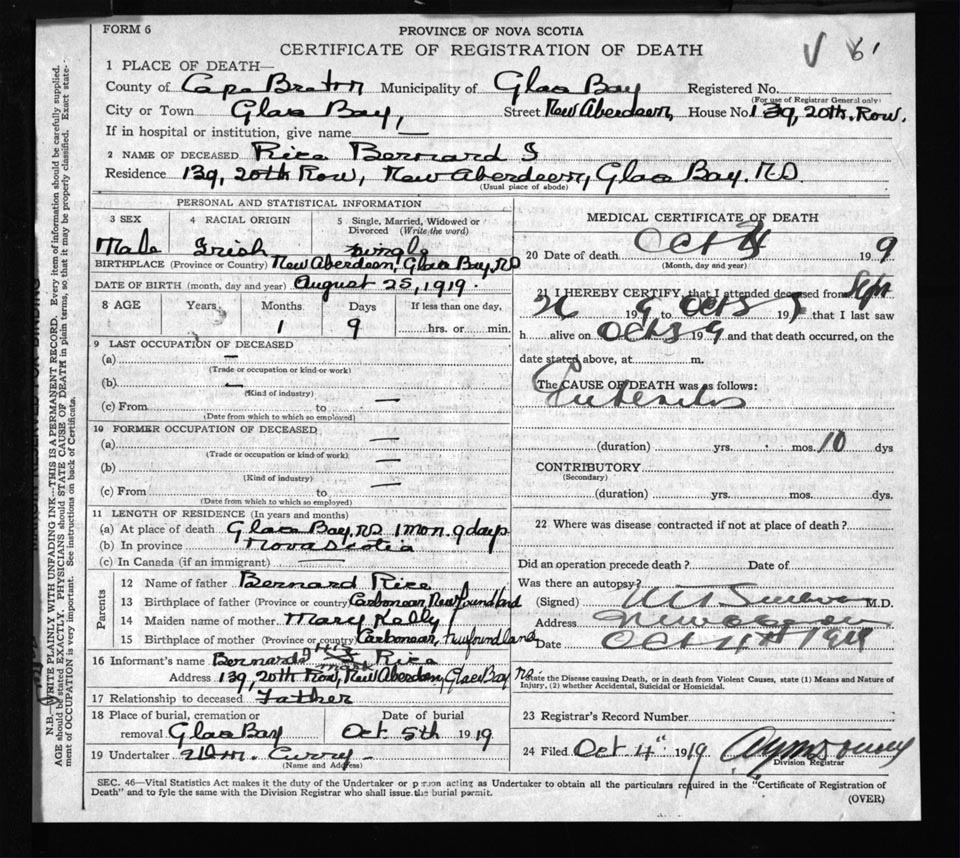 FORM 6
PROVINCE OF NOVA SCOTIA
CERTIFICATE OF REGISTRATION OF DEATH
1 PLACE OF DEATH—
County of Cape Breton Municipality of Glace Bay Registered No.
(For use of Registrar General only)
City or Town Glace Bay, Street New Aberdeen, House No. 139, 20th. Row.
If in hospital or institution, give name —
2 NAME OF DECEASED Rice Bernard J
Residence 139, 20th Row, New Aberdeen, Glace Bay. N.S.
(Usual place of abode)
PERSONAL AND STATISTICAL INFORMATION
3 SEX 4 RACIAL ORIGIN 5 Single, Married, Widowed or Divorced (Write the word)
Male Irish single
BIRTHPLACE (Province or Country) New Aberdeen, Glace Bay, N.S
DATE OF BIRTH (month, day and year) August 25, 1919.
8 AGE Years Months Days If less than one day,
1 9 hrs. or min.
9 LAST OCCUPATION OF DECEASED
(a) —
(Trade or occupation or kind or work)
(b) —
(Kind of industry)
(c) From to —
(Date from which to which so employed)
10 FORMER OCCUPATION OF DECEASED
(a) —
(Trade or occupation or kind of work)
(b) —
(Kind of industry)
(c) From to —
(Date from which to which so employed)
11 LENGTH OF RESIDENCE (In years and months)
(a) At place of death Glace Bay, N.S. 1 mon. 9 days
(b) In province Nova Scotia
(c) In Canada (if an immigrant) —
Parents
12 Name of father Bernard Rice
13 Birthplace of father (Province or country) Carbonear, Newfoundland
14 Maiden name of mother Mary Kelly
15 Birthplace of mother (Province or country) Carbonear, Newfoundland
16 Informant's name Bernard his X mark Rice
Address 139, 20th Row, New Aberdeen, Glace Bay NS
17 Relationship to deceased Father
18 Place of burial, cremation or removal Glace Bay Date of burial Oct 5th 1919
19 Undertaker Wm. Curry
(Name and Address)
MEDICAL CERTIFICATE OF DEATH
20 Date of death Oct 1919
(Month, day and year)
21 I HEREBY CERTIFY, that I attended deceased from Sept
26 1919 Oct 3 19 that I last saw
h alive on Oct 3 1919 and that death occurred, on the
date stated above, at m.
The CAUSE OF DEATH was as follows:
Enteritis
(duration) yrs. mos. 10 dys
CONTRIBUTORY
(Secondary)
(duration) yrs. mos. dys.
22 Where was disease contracted if not at place of death?
Did an operation precede death? Date of
Was there an autopsy?
(Signed) M.D.
Address
Date Oct 4th 1919
State the Disease causing Death, or in death from Violent Causes, state (1) Means and Nature of Injury, (2) whether Accidental, Suicidal or Homicidal.
23 Registrar's Record Number
24 Filed Oct 4" 1919
Division Registrar
SEC. 46—Vital Statistics Act makes it the duty of the Undertaker or person acting as Undertaker to obtain all the particulars required in the "Certificate of Registration of
Death" and to fyle the same with the Division Registrar who shall issue the burial permit.
(OVER)
N.B.—WRITE PLAINLY WITH UNFADING INK—THIS IS A PERMANENT RECORD. Every item of information should be carefully supplied.
AGE should be stated EXACTLY. PHYSICIANS should STATE CAUSE OF DEATH in plain terms, so that it may be properly classified. Exact state-
ment of OCCUPATION is very important. See instructions on back of Certificate.